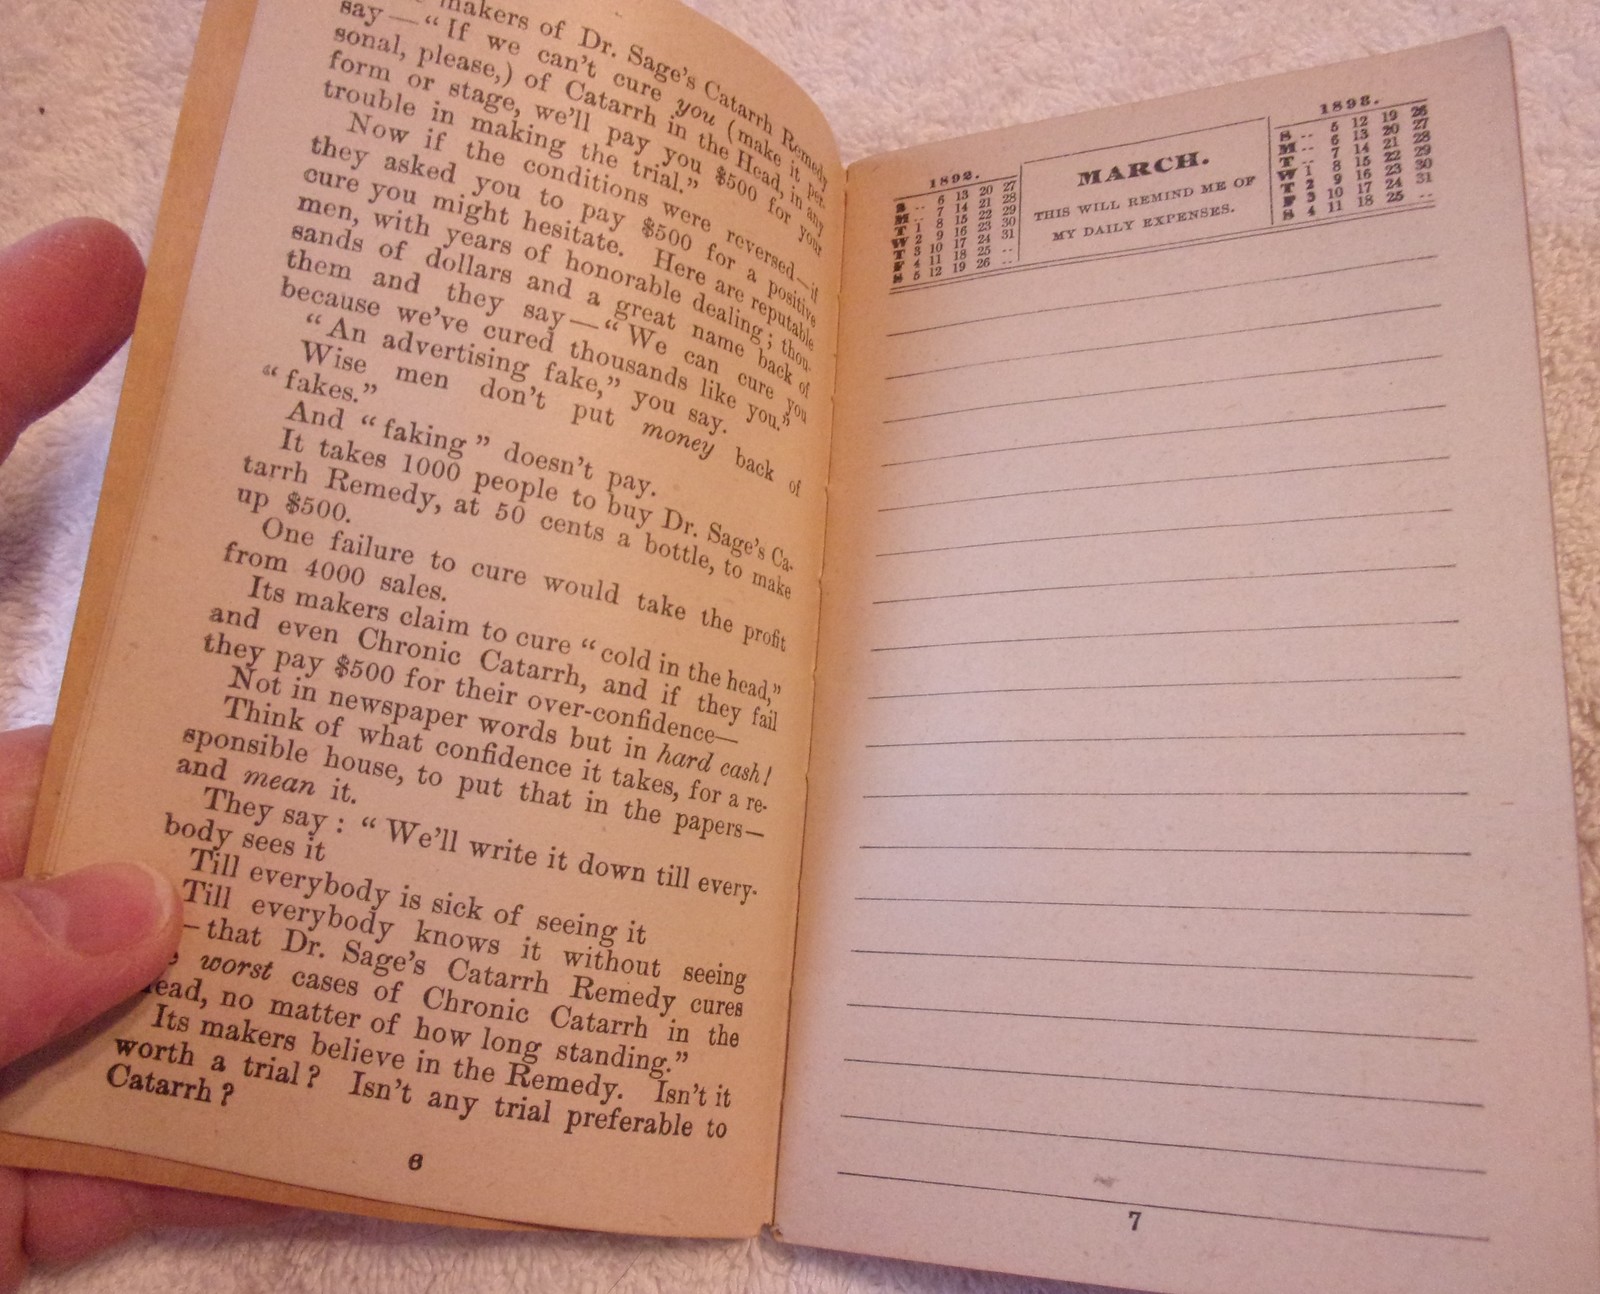 makers of Dr. Sage's Catarrh Remedy
say—“If we can't cure you (make it per-
sonal, please,) of Catarrh in the Head, in any
form or stage, we'll pay you $500 for your
trouble in making the trial.”
Now if the conditions were reversed—if
they asked you to pay $500 for a positive
cure you might hesitate. Here are reputable
men, with years of honorable dealing; thou-
sands of dollars and a great name back of
them and they say—“We can cure you
because we've cured thousands like you.”
“An advertising fake,” you say.
Wise men don't put money back of
“fakes.”
And “faking” doesn't pay.
It takes 1000 people to buy Dr. Sage's Ca-
tarrh Remedy, at 50 cents a bottle, to make
up $500.
One failure to cure would take the profit
from 4000 sales.
Its makers claim to cure “cold in the head,”
and even Chronic Catarrh, and if they fail
they pay $500 for their over-confidence—
Not in newspaper words but in hard cash!
Think of what confidence it takes, for a re-
sponsible house, to put that in the papers—
and mean it.
They say: “We'll write it down till every-
body sees it
Till everybody is sick of seeing it
Till everybody knows it without seeing
—that Dr. Sage's Catarrh Remedy cures
worst cases of Chronic Catarrh in the
ead, no matter of how long standing.”
Its makers believe in the Remedy. Isn't it
worth a trial? Isn't any trial preferable to
Catarrh?
6
1892.
S .. 6 13 20 27
M .. 7 14 21 28
T 1 8 15 22 29
W 2 9 16 23 30
T 3 10 17 24 31
F 4 11 18 25 ..
S 5 12 19 26 ..
MARCH.
THIS WILL REMIND ME OF
MY DAILY EXPENSES.
1893.
S .. 5 12 19 26
M .. 6 13 20 27
T .. 7 14 21 28
W 1 8 15 22 29
T 2 9 16 23 30
F 3 10 17 24 31
S 4 11 18 25 ..
7